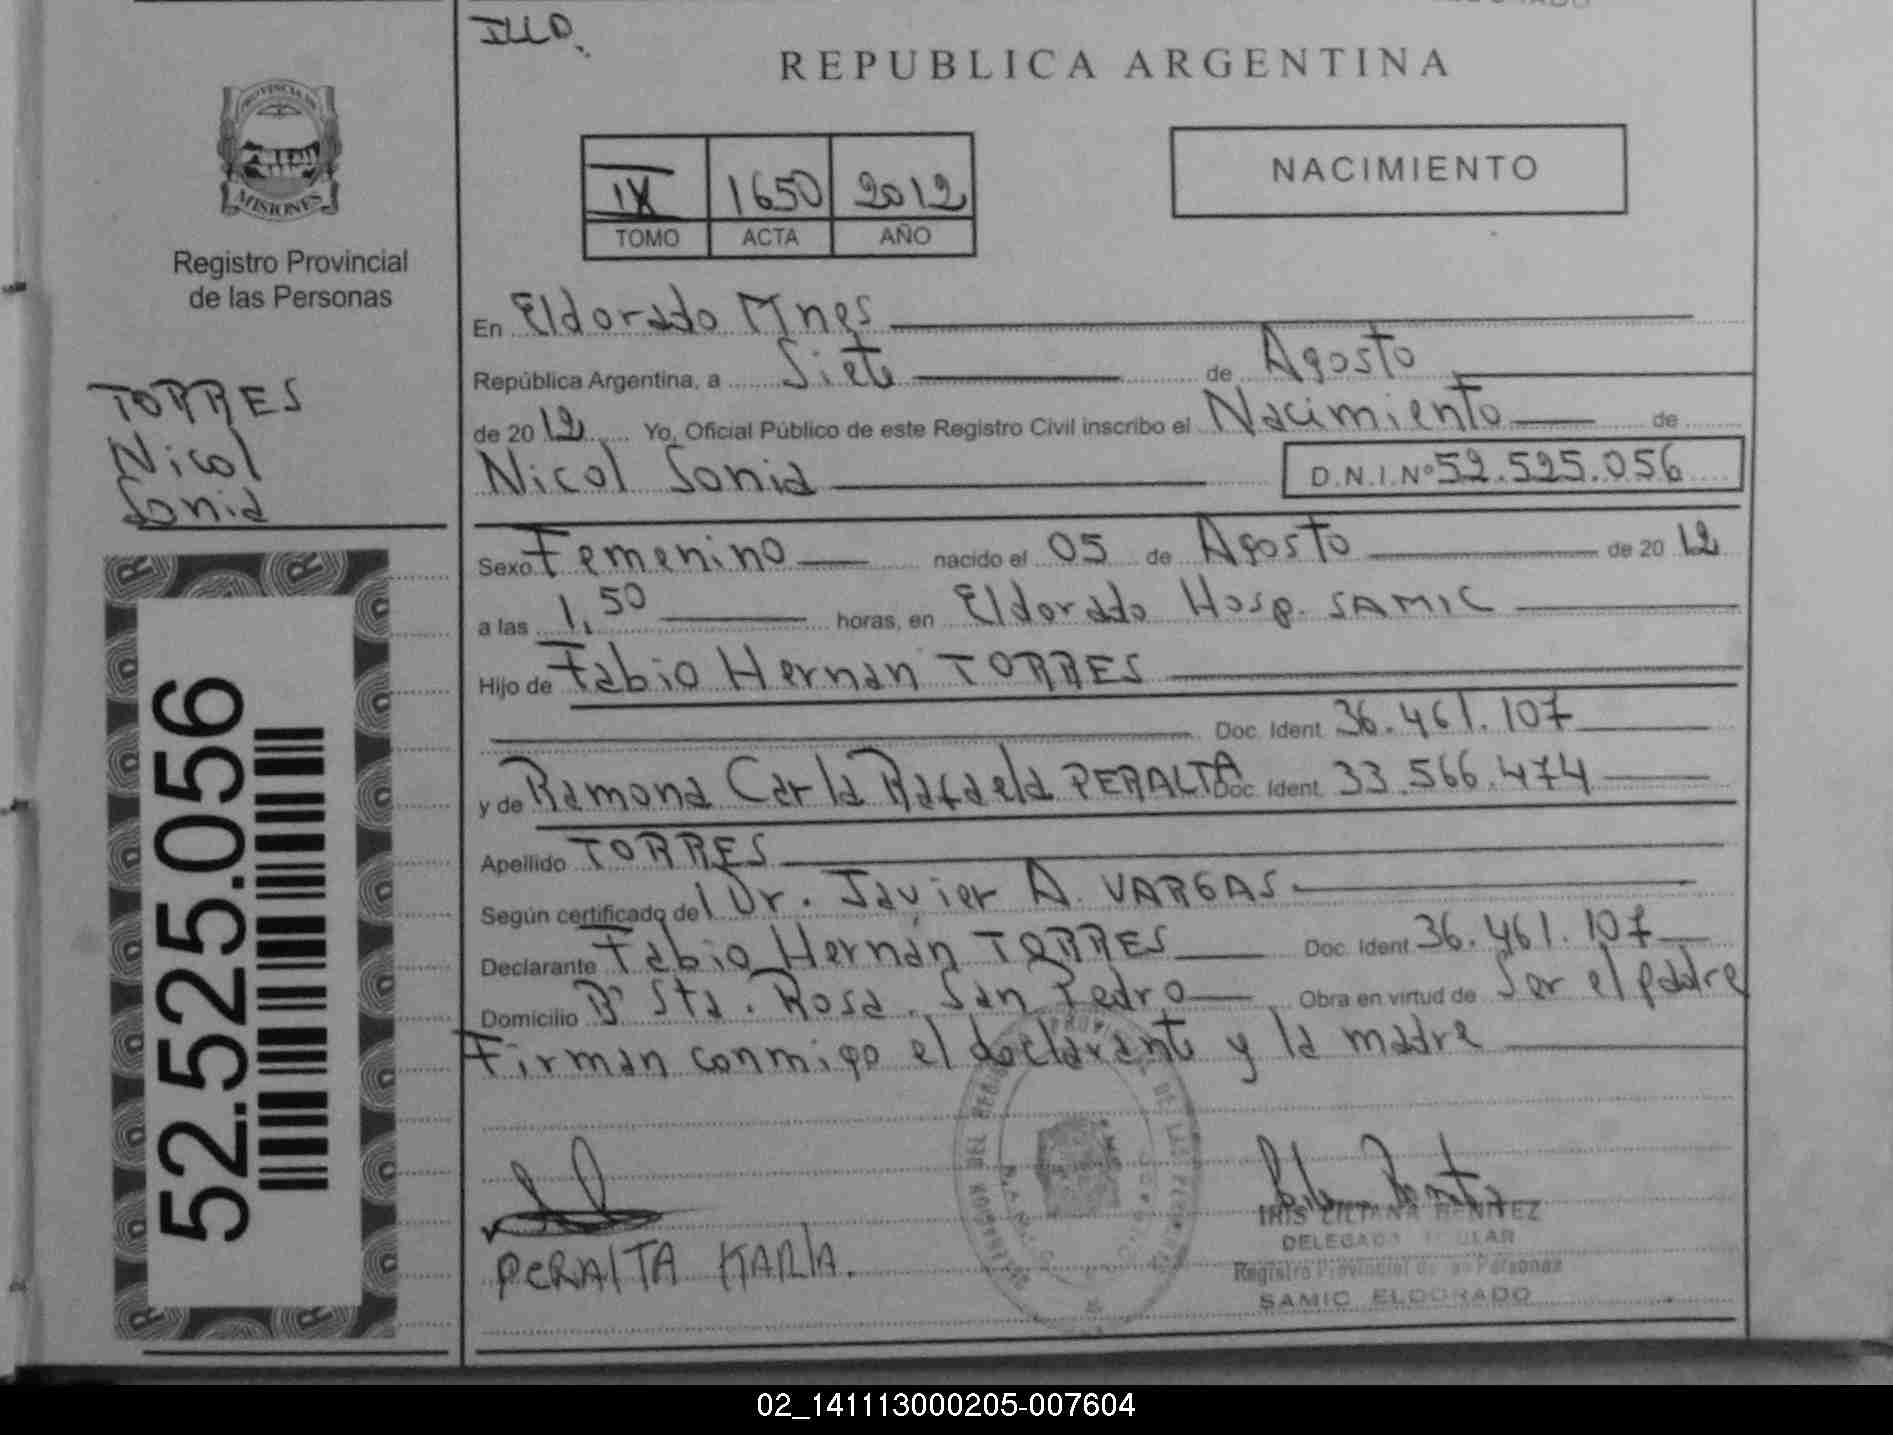 ILLD.
REPUBLICA ARGENTINA
PROVINCIA DE
MISIONES
Registro Provincial
de las Personas
IX 1650 2012
TOMO ACTA AÑO
NACIMIENTO
TORRES
Nicol
Sonia
52.525.056
En Eldorado Mnes
República Argentina, a Siete de Agosto
de 2012 Yo, Oficial Público de este Registro Civil inscribo el Nacimiento de
Nicol Sonia D.N.I. Nº 52.525.056
Sexo Femenino nacido el 05 de Agosto de 2012
a las 1,50 horas, en Eldorado Hosp. SAMIC
Hijo de Fabio Hernan TORRES
Doc. Ident. 36.461.107
y de Ramona Carla Rafaela PERALTA Doc. Ident. 33.566.474
Apellido TORRES
Según certificado del Dr. Javier A. VARGAS
Declarante Fabio Hernán TORRES Doc. Ident. 36.461.107
Domicilio Bº Sta. Rosa. San Pedro Obra en virtud de Ser el padre
Firman conmigo el declarante y la madre
PERALTA KARLA.
IRIS LILIANA BENITEZ
DELEGADA TITULAR
Registro Provincial de las Personas
SAMIC ELDORADO
02_141113000205-007604